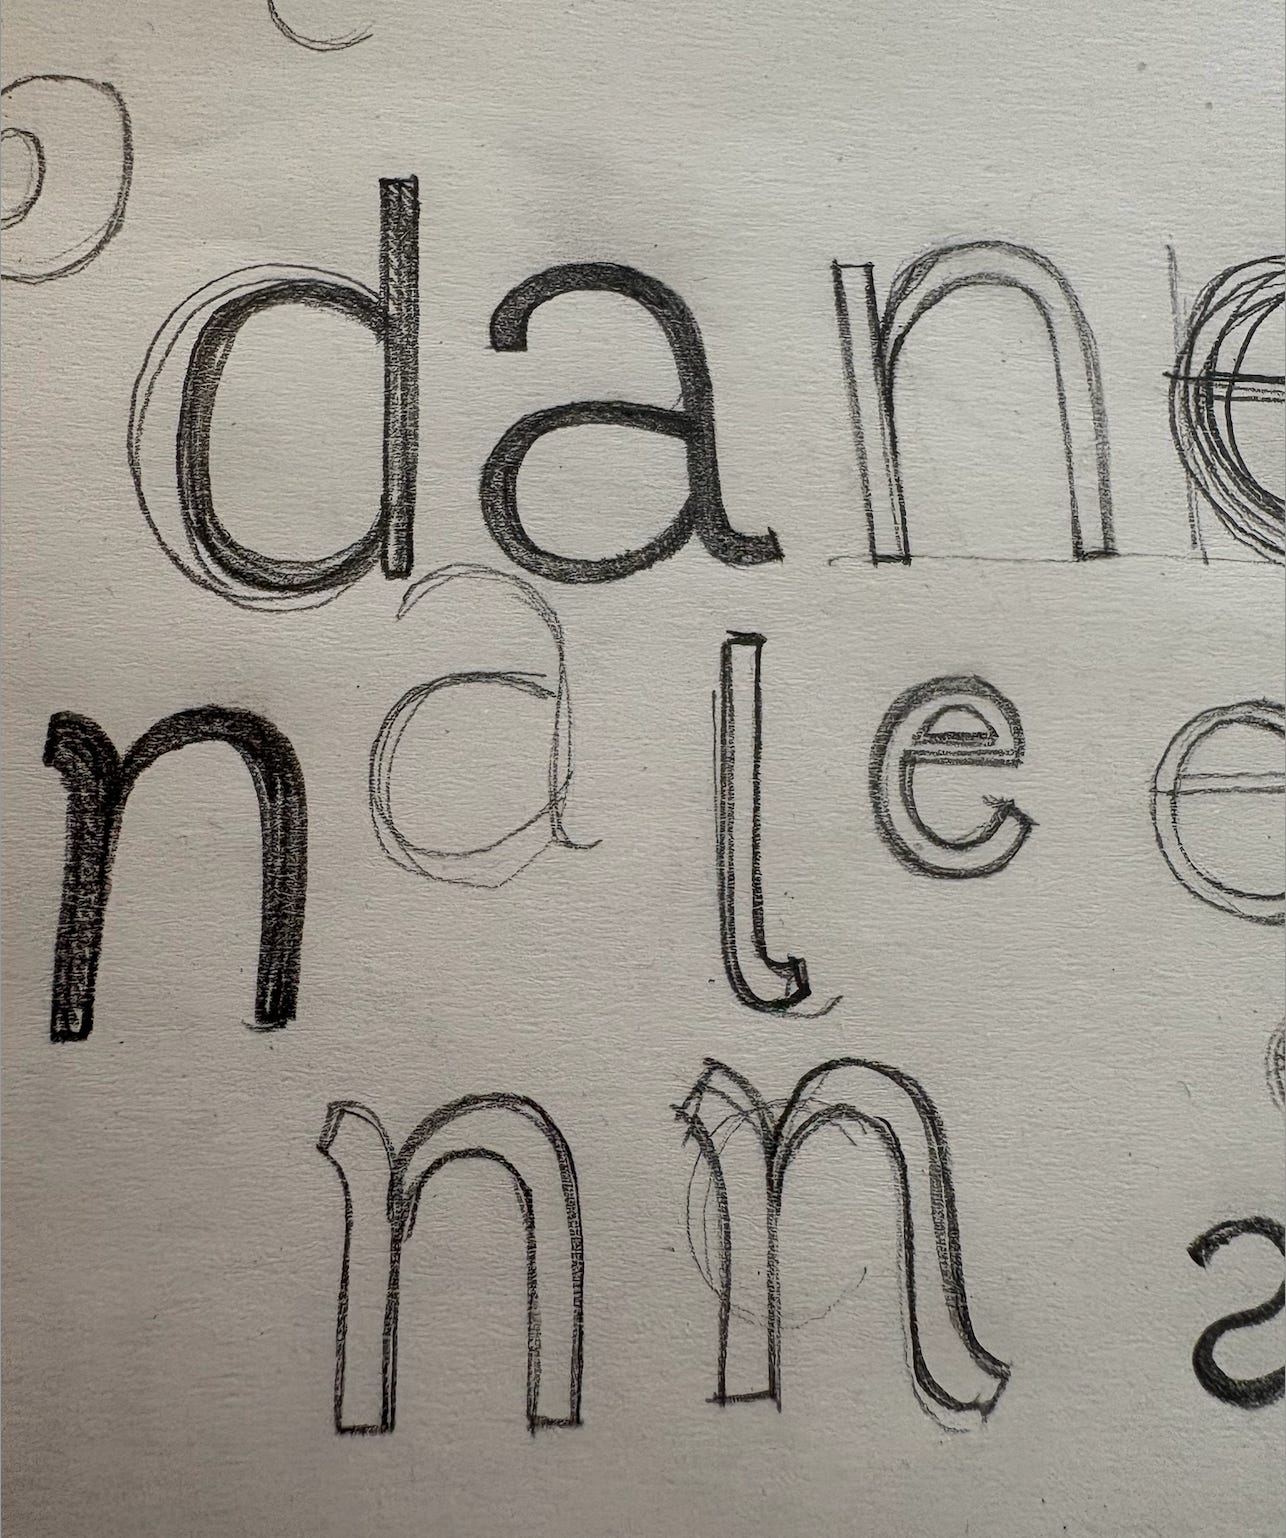 dane
nale e
nn a